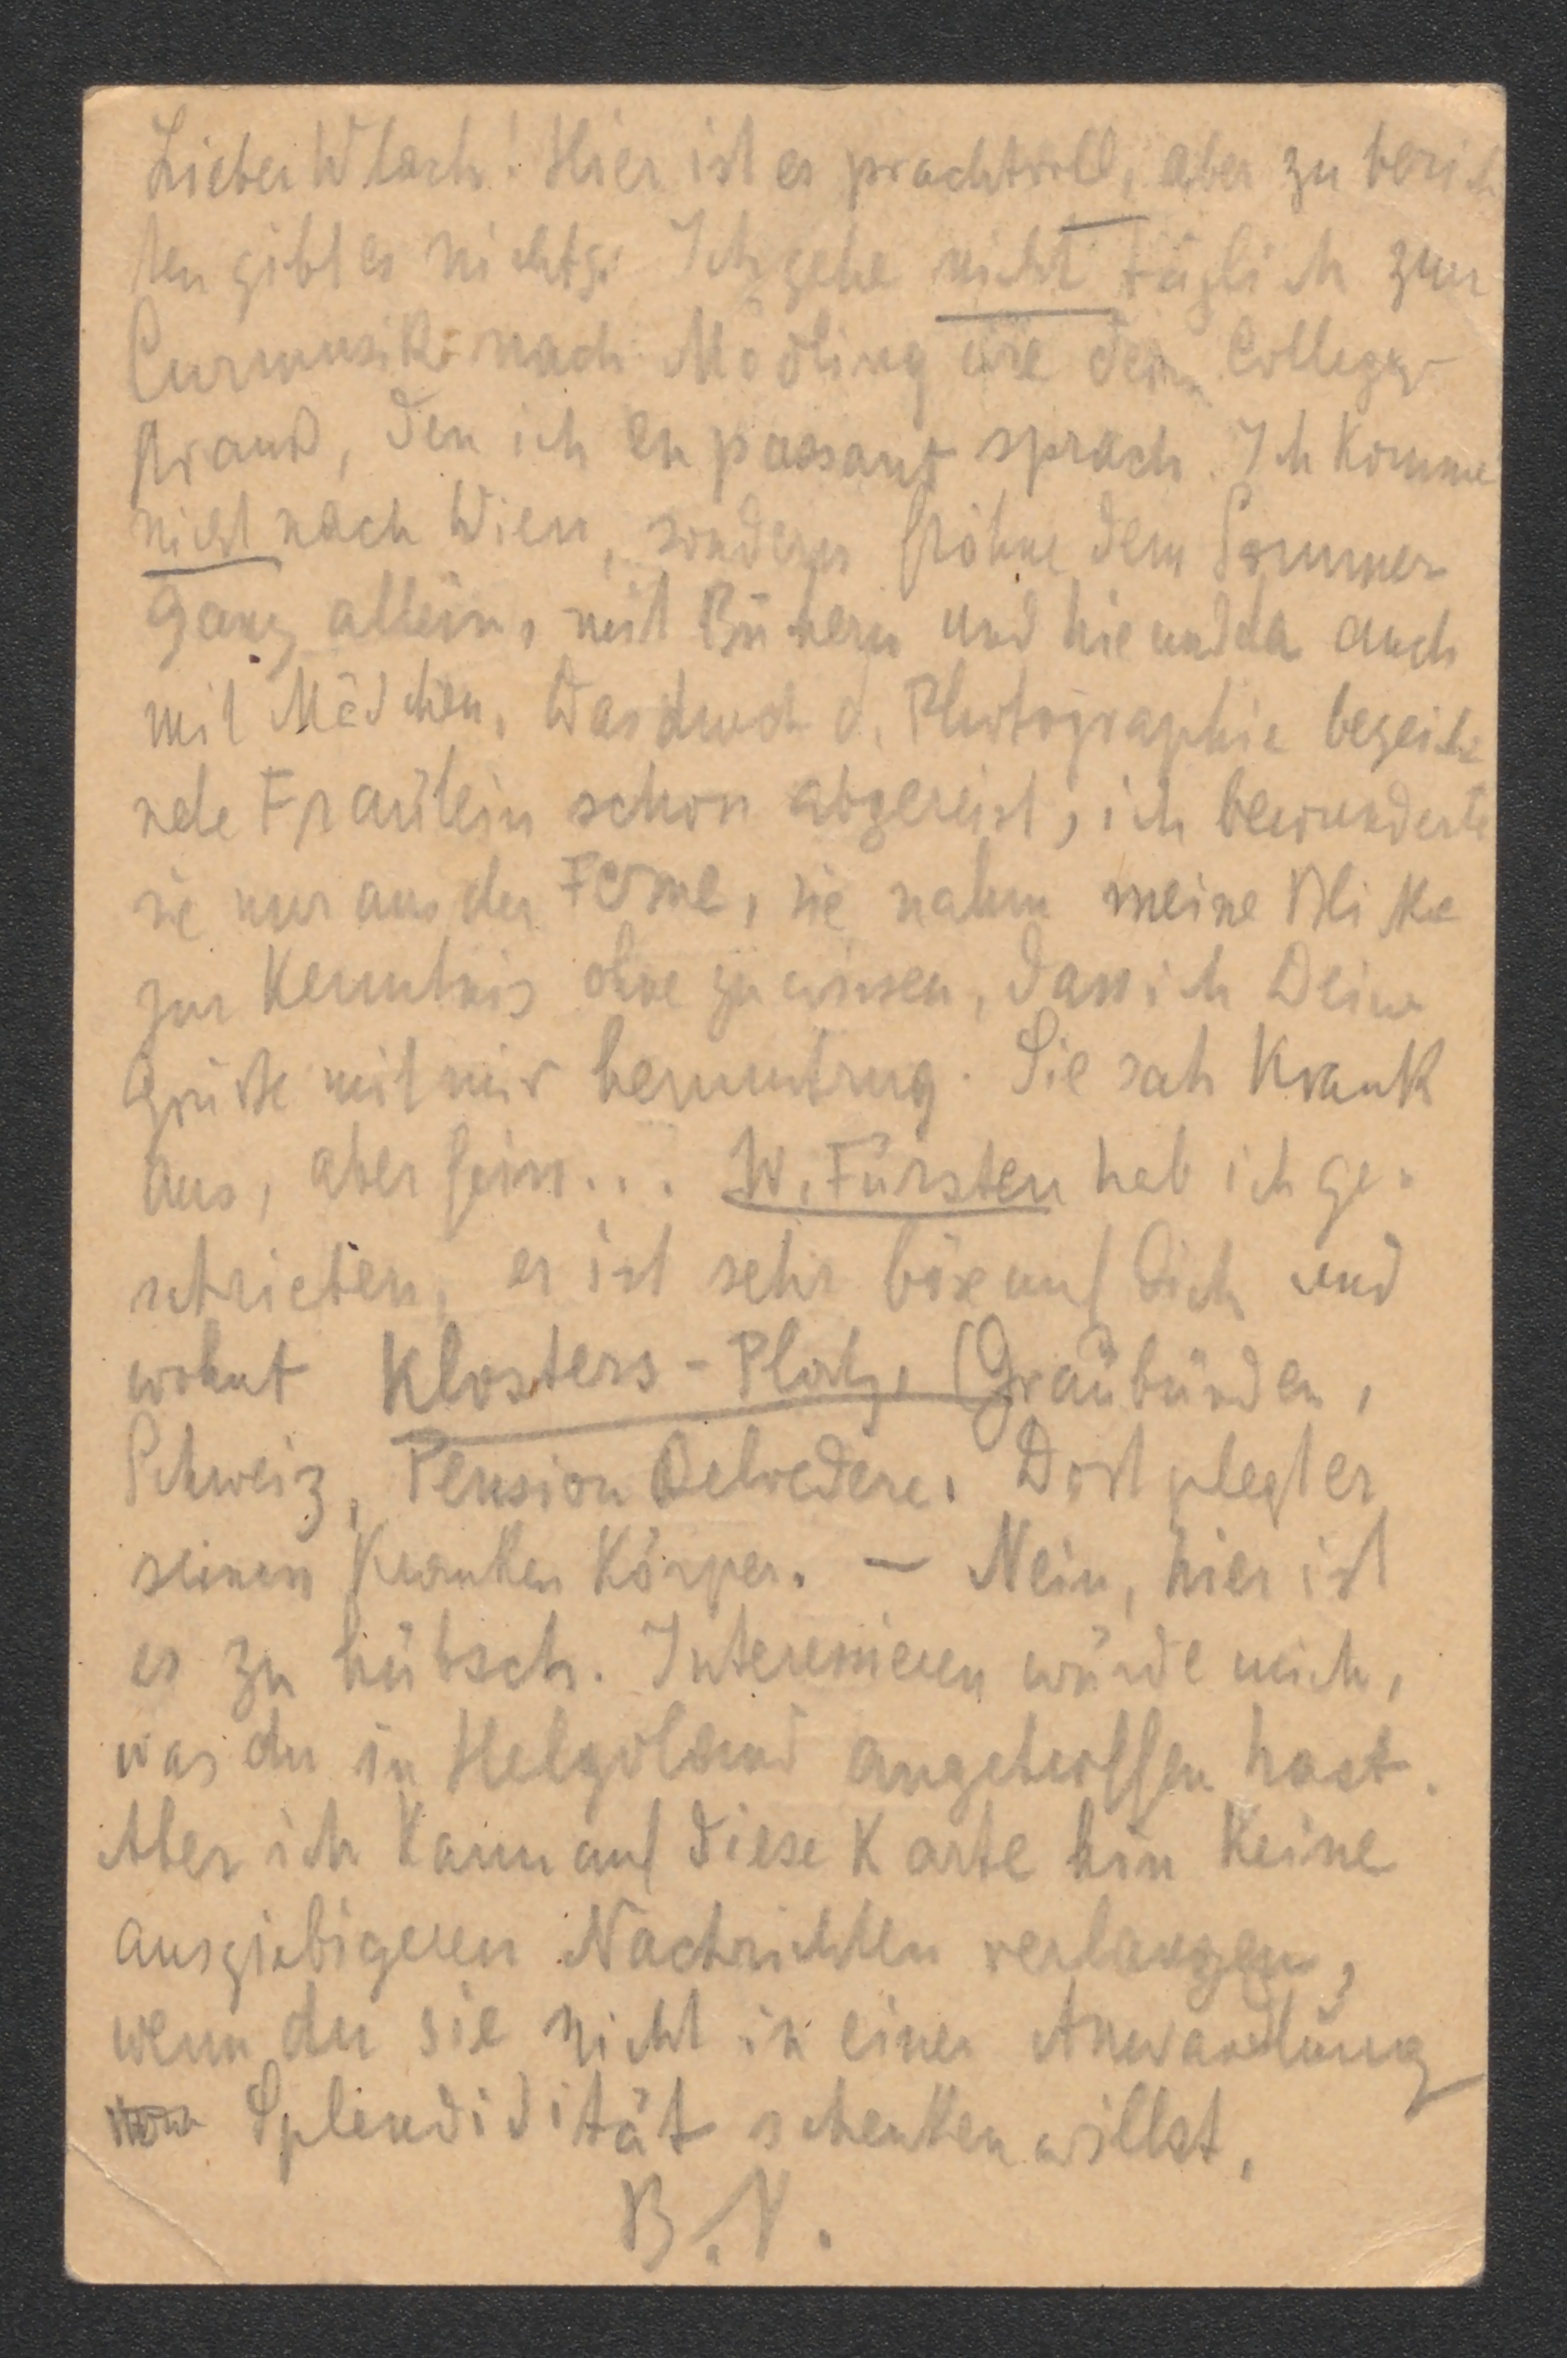 Lieber Wlach! Hier ist es prachtvoll, aber zu berich
ten gibt es nichts. Ich gehe nicht täglich zur
Curmusik nach Mödling wie dein College
Brand, den ich en passant sprach. Ich komme
nicht nach Wien, sondern fröhne dem Sommer
ganz allein, mit Büchern und hie und da auch
mit Mädchen. Das durch d. Photographie bezeich
nete Fraülein schon abgereist, ich bewunderte
sie nur aus der Ferne, sie nahm meine Blicke
zur Kenntnis ohne zu wissen, dass ich Deine
Grüße mit mir herumtrug. Sie sah krank
aus, aber fein... W. Fürsten hab ich ge-
schrieben, er ist sehr böse auf dich und
wohnt Klosters-Platz, (Graübünden,
Schweiz, Pension Belvedere. Dort plegt er
seinen kranken Körper. — Nein, hier ist
es zu hübsch. Interessieren würde mich,
was du in Helgoland angetroffen hast.
Aber ich kann auf diese Karte hin keine
ausgiebigeren Nachrichten verlangen,
wenn du sie nicht in einer Anwandlung
Splendidität schenken willst.
B. V.